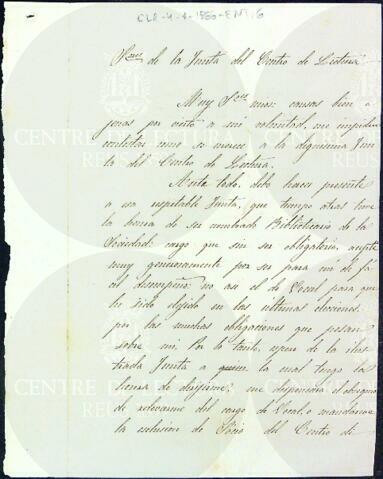 CLR-4-4-1866-EM.6
Sres de la Junta del Centro de Lectura
Muy Sres mios: causas bien a
genas por cierto a mi voluntad, me impiden
contestar como se merece a la dignisima Jun
ta del Centro de Lectura.
Ante todo, debo hacer presente
a esa respetable Junta, que tiempo atras tuve
la honra de ser nombrado Bibliotecario de la
Sociedad: cargo que sin ser obligatorio, acepté
muy generosamente por ser para mi de fá
cil desempeño: no asi el de Vocal para que
he sido elejido en las últimas elecciones
por las muchas obligaciones que pesan
sobre mi. Por lo tanto, espero de la ilus
trada Junta a quien la cual tengo la
honra de dirigirme, me dispensará el obsequio
de relevarme del cargo de Vocal, o mandarme
la esclusion de Sócio del Centro de
CENTRE DE LECTURA
REUS
CENTRE DE LECTURA
REUS